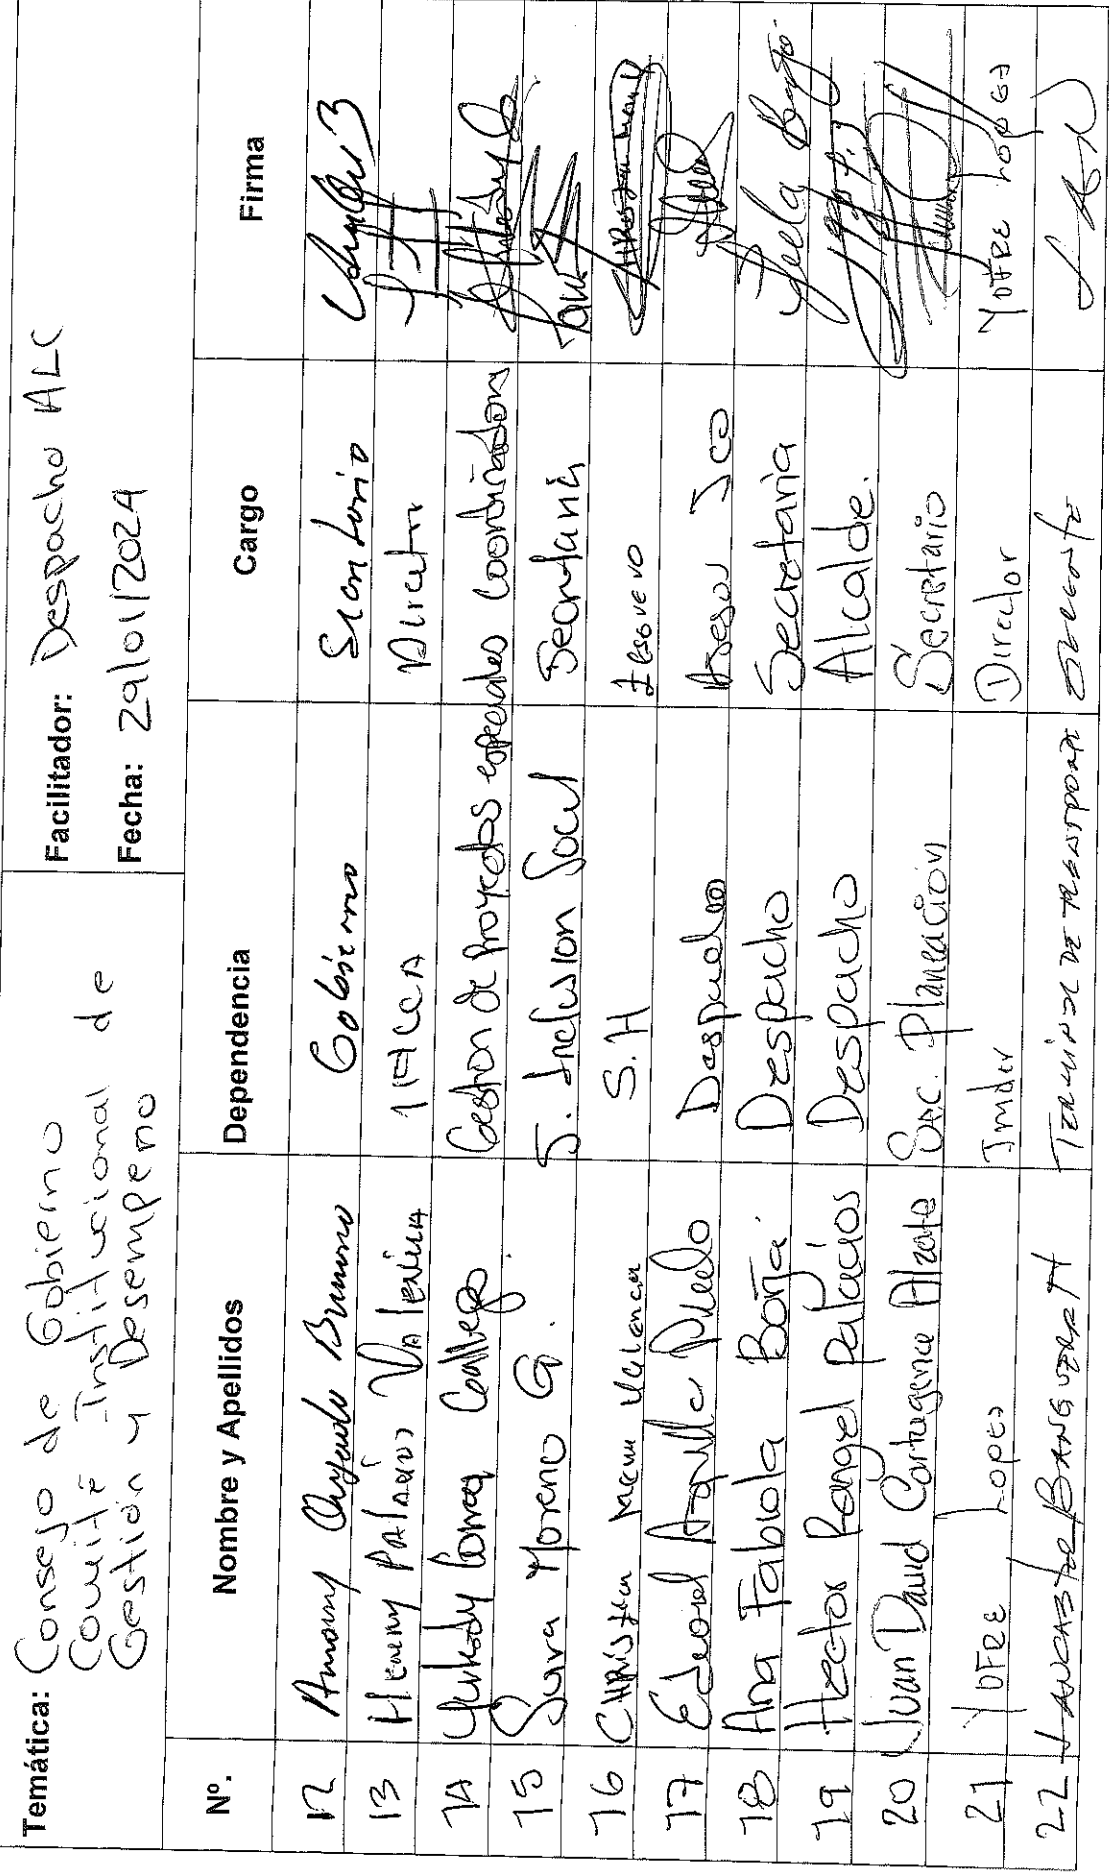 Temática: Consejo de Gobierno
Comité Institucional de
Gestión y Desempeno
Facilitador: Despacho ALC
Fecha: 29/01/2024
Nº. Nombre y Apellidos Dependencia Cargo Firma
12 Gobierno
13 Henrry Palacios Valencia Director
14 Correa Gallego Gestion de Proyectos especiales Coordinadora
15 Sara Moreno G. S. Inclusion Social Secretaria Sara
16 Christian Valencia S.H Tesorero
17 Despacho Asesor
18 Ana Fabiola Borja. Despacho Secretaria
19 Hector Rangel palacios Despacho Alcalde.
20 Juan David Cartagena Alzate Sec. Planeación Secretario
21 YOFRE Lopez Imder Director YOFRE LOPEZ
22 TERMINAL DE TRANSPORTE GERENTE